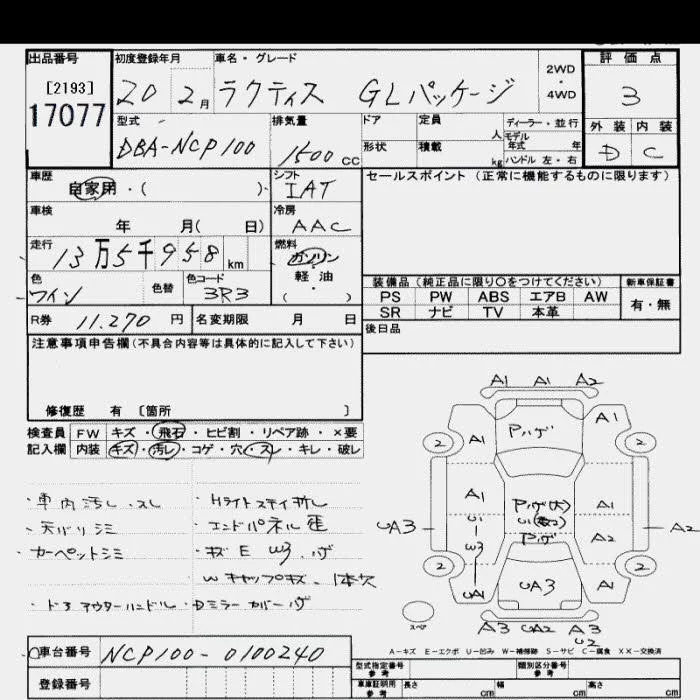 出品番号 初度登録年月 車名・グレード 2WD ・ 4WD 評価点
[2193]
17077
20 2月 ラクティス GLパッケージ 3
型式 排気量 ドア 定員 人 ディーラー・並行 外装 内装
モデル年式 年
DBA-NCP100 1500cc 形状 積載 kg ハンドル 左・右 D C
車歴 シフト セールスポイント(正常に機能するものに限ります)
自家用・( ) IAT
車検 冷房
年 月( 日) AAC
走行 燃料
13万5千958km ガソリン
軽油
( )
色 色替 色コード
ワイン 3R3
装備品(純正品に限り○をつけてください) 新車保証書
PS PW ABS エアB AW 有・無
SR ナビ TV 本革
R券 11,270円 名変期限 月 日 後日品
注意事項申告欄(不具合内容等は具体的に記入して下さい)
修復歴 有 〔箇所 〕
検査員 FW キズ・飛石・ヒビ割・リペア跡・×要
記入欄 内装 キズ・汚レ・コゲ・穴・スレ・キレ・破レ
・車内汚レ.スレ
・天バリシミ
・カーペットシミ
・ドアアウターハンドル
・Hライトステイ折レ
・エンドパネル歪
・キズ E W3 .ハゲ
Wキャップキズ.1本欠
・Dミラーカバーハゲ
A1 A1 A2
A1 Pハゲ A1
2 2
A1 Pハゲ(大) A1
UA3 U1 U1 A2
W3 Pハゲ A2
2 2
UA1 UA3 A1
スペア
A3 UA2 A3
U2
A−キズ E−エクボ U−凹み W−補修跡 S−サビ C−腐食 XX−交換済
車台番号 NCP100-0100240
登録番号
型式指定番号 参考 類別区分番号 参考
車庫証明用 参考 長さ cm 幅 cm 高さ cm